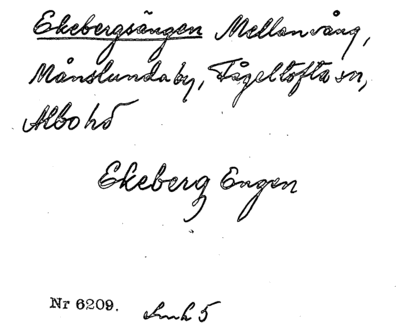 Ekebergsängen Mellanvång,
Månslunda by, Fågeltofta sn,
Albo hd
Ekeberg Engen
Nr 6209. Lmk 5